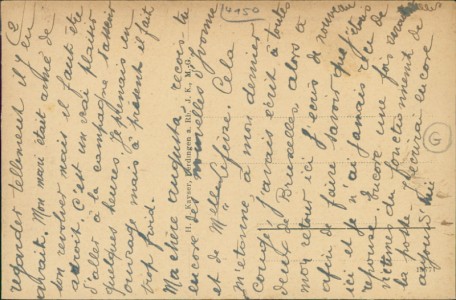 2
regarder tellement il y en
avait. Mon mari était armé de
son revolver mais il faut être
adroit. C'est un vrai plaisir
d'aller à la campagne passer
quelques heures. Je prenais un
ouvrage mais à présent il fait
trop froid.
Ma chère Augusta, reçois-tu
encore des nouvelles d'Yvonne
et de Melle Lefèvre. Cela
m'étonne, à mon dernier
congé j'avais écrit à toutes
deux de Bruxelles alors à
mon retour ici j'écris de nouveau
afin de faire savoir que j'étais
ici et je n'ai jamais reçu de
réponse. Encore une fois
victimes du fonctionnement de
la poste. J'écrirai encore
aujourd'hui
14150
H. Kayser, Uerdingen a. Rh. J. K., M.-G.
G